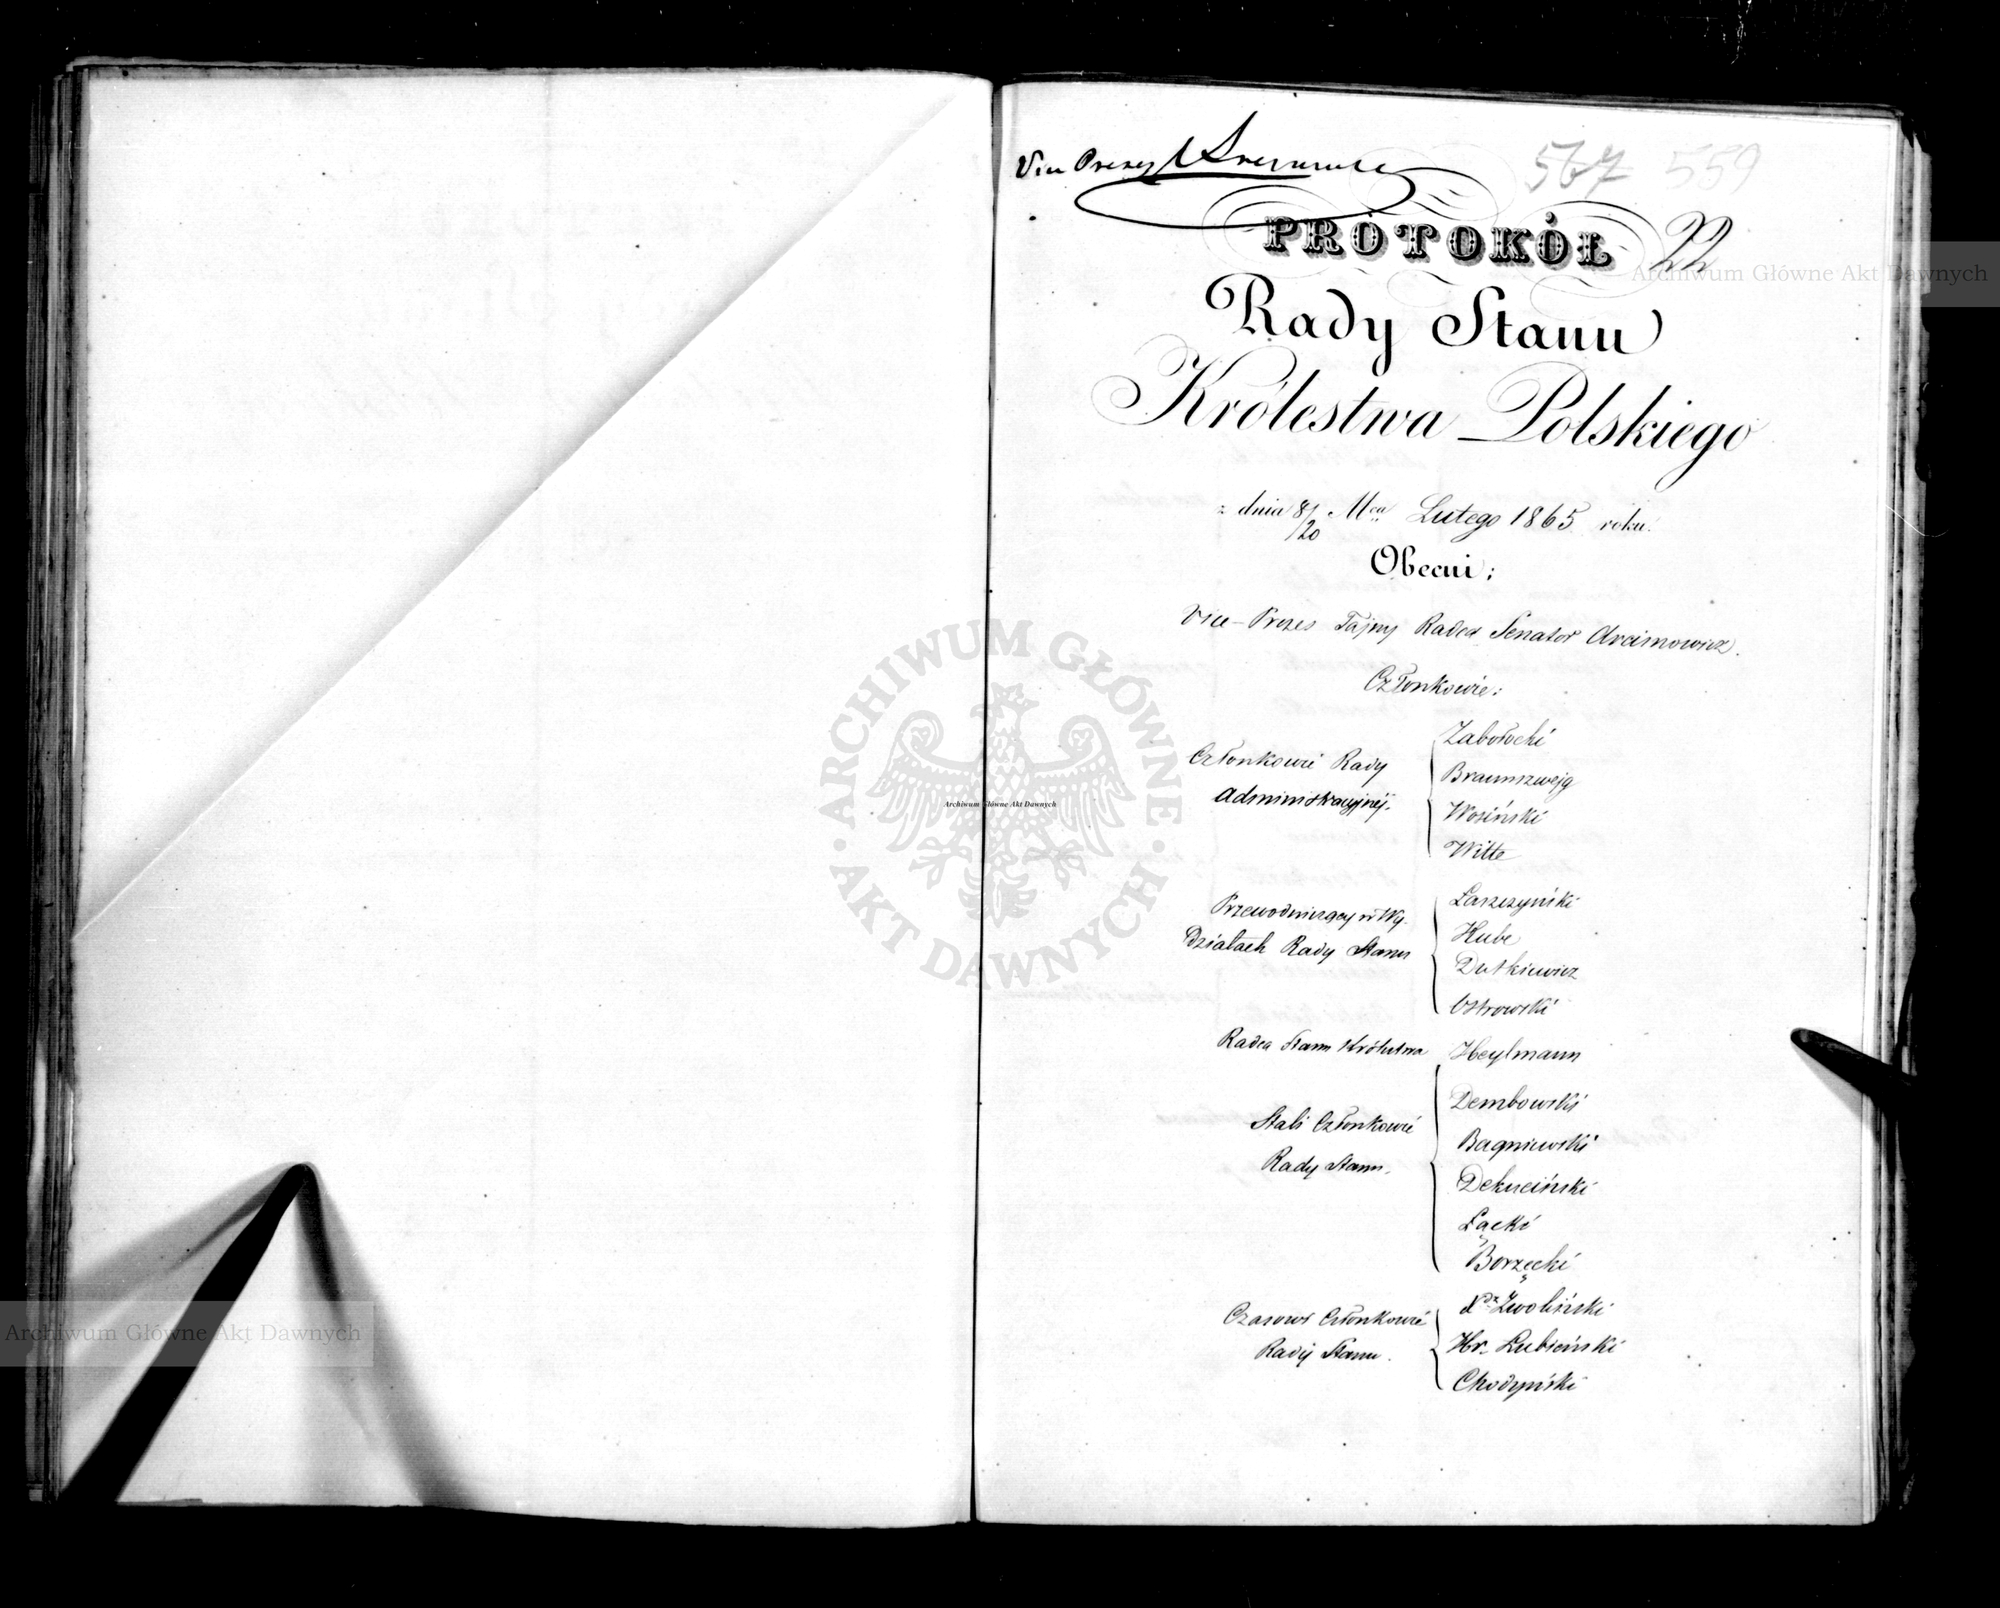 Vice Prezes Arcimowicz
567 559
PROTOKÓŁ 22
Rady Stanu
Królestwa Polskiego
z dnia 8/20 Mca Lutego 1865 roku.
Obecni:
Vice-Prezes Tajny Radca Senator Arcimowicz.
Członkowie:
Członkowie Rady
Administracyjnej.
Zabołocki
Braunszwejg
Wosiński
Witte
Przewodniczący w Wy-
działach Rady Stanu
Łaszczyński
Hube
Dutkiewicz
Ostrowski
Radca Stanu Królestwa Heylmann
Stali Członkowie
Rady Stanu.
Dembowski
Bagniewski
Dekuciński
Łącki
Borzęcki
Czasowi Członkowie
Rady Stanu.
Xdz Zwoliński
Hr. Łubieński
Chodyński
Archiwum Główne Akt Dawnych
Archiwum Główne Akt Dawnych
Archiwum Główne Akt Dawnych
ARCHIWUM GŁÓWNE
AKT DAWNYCH